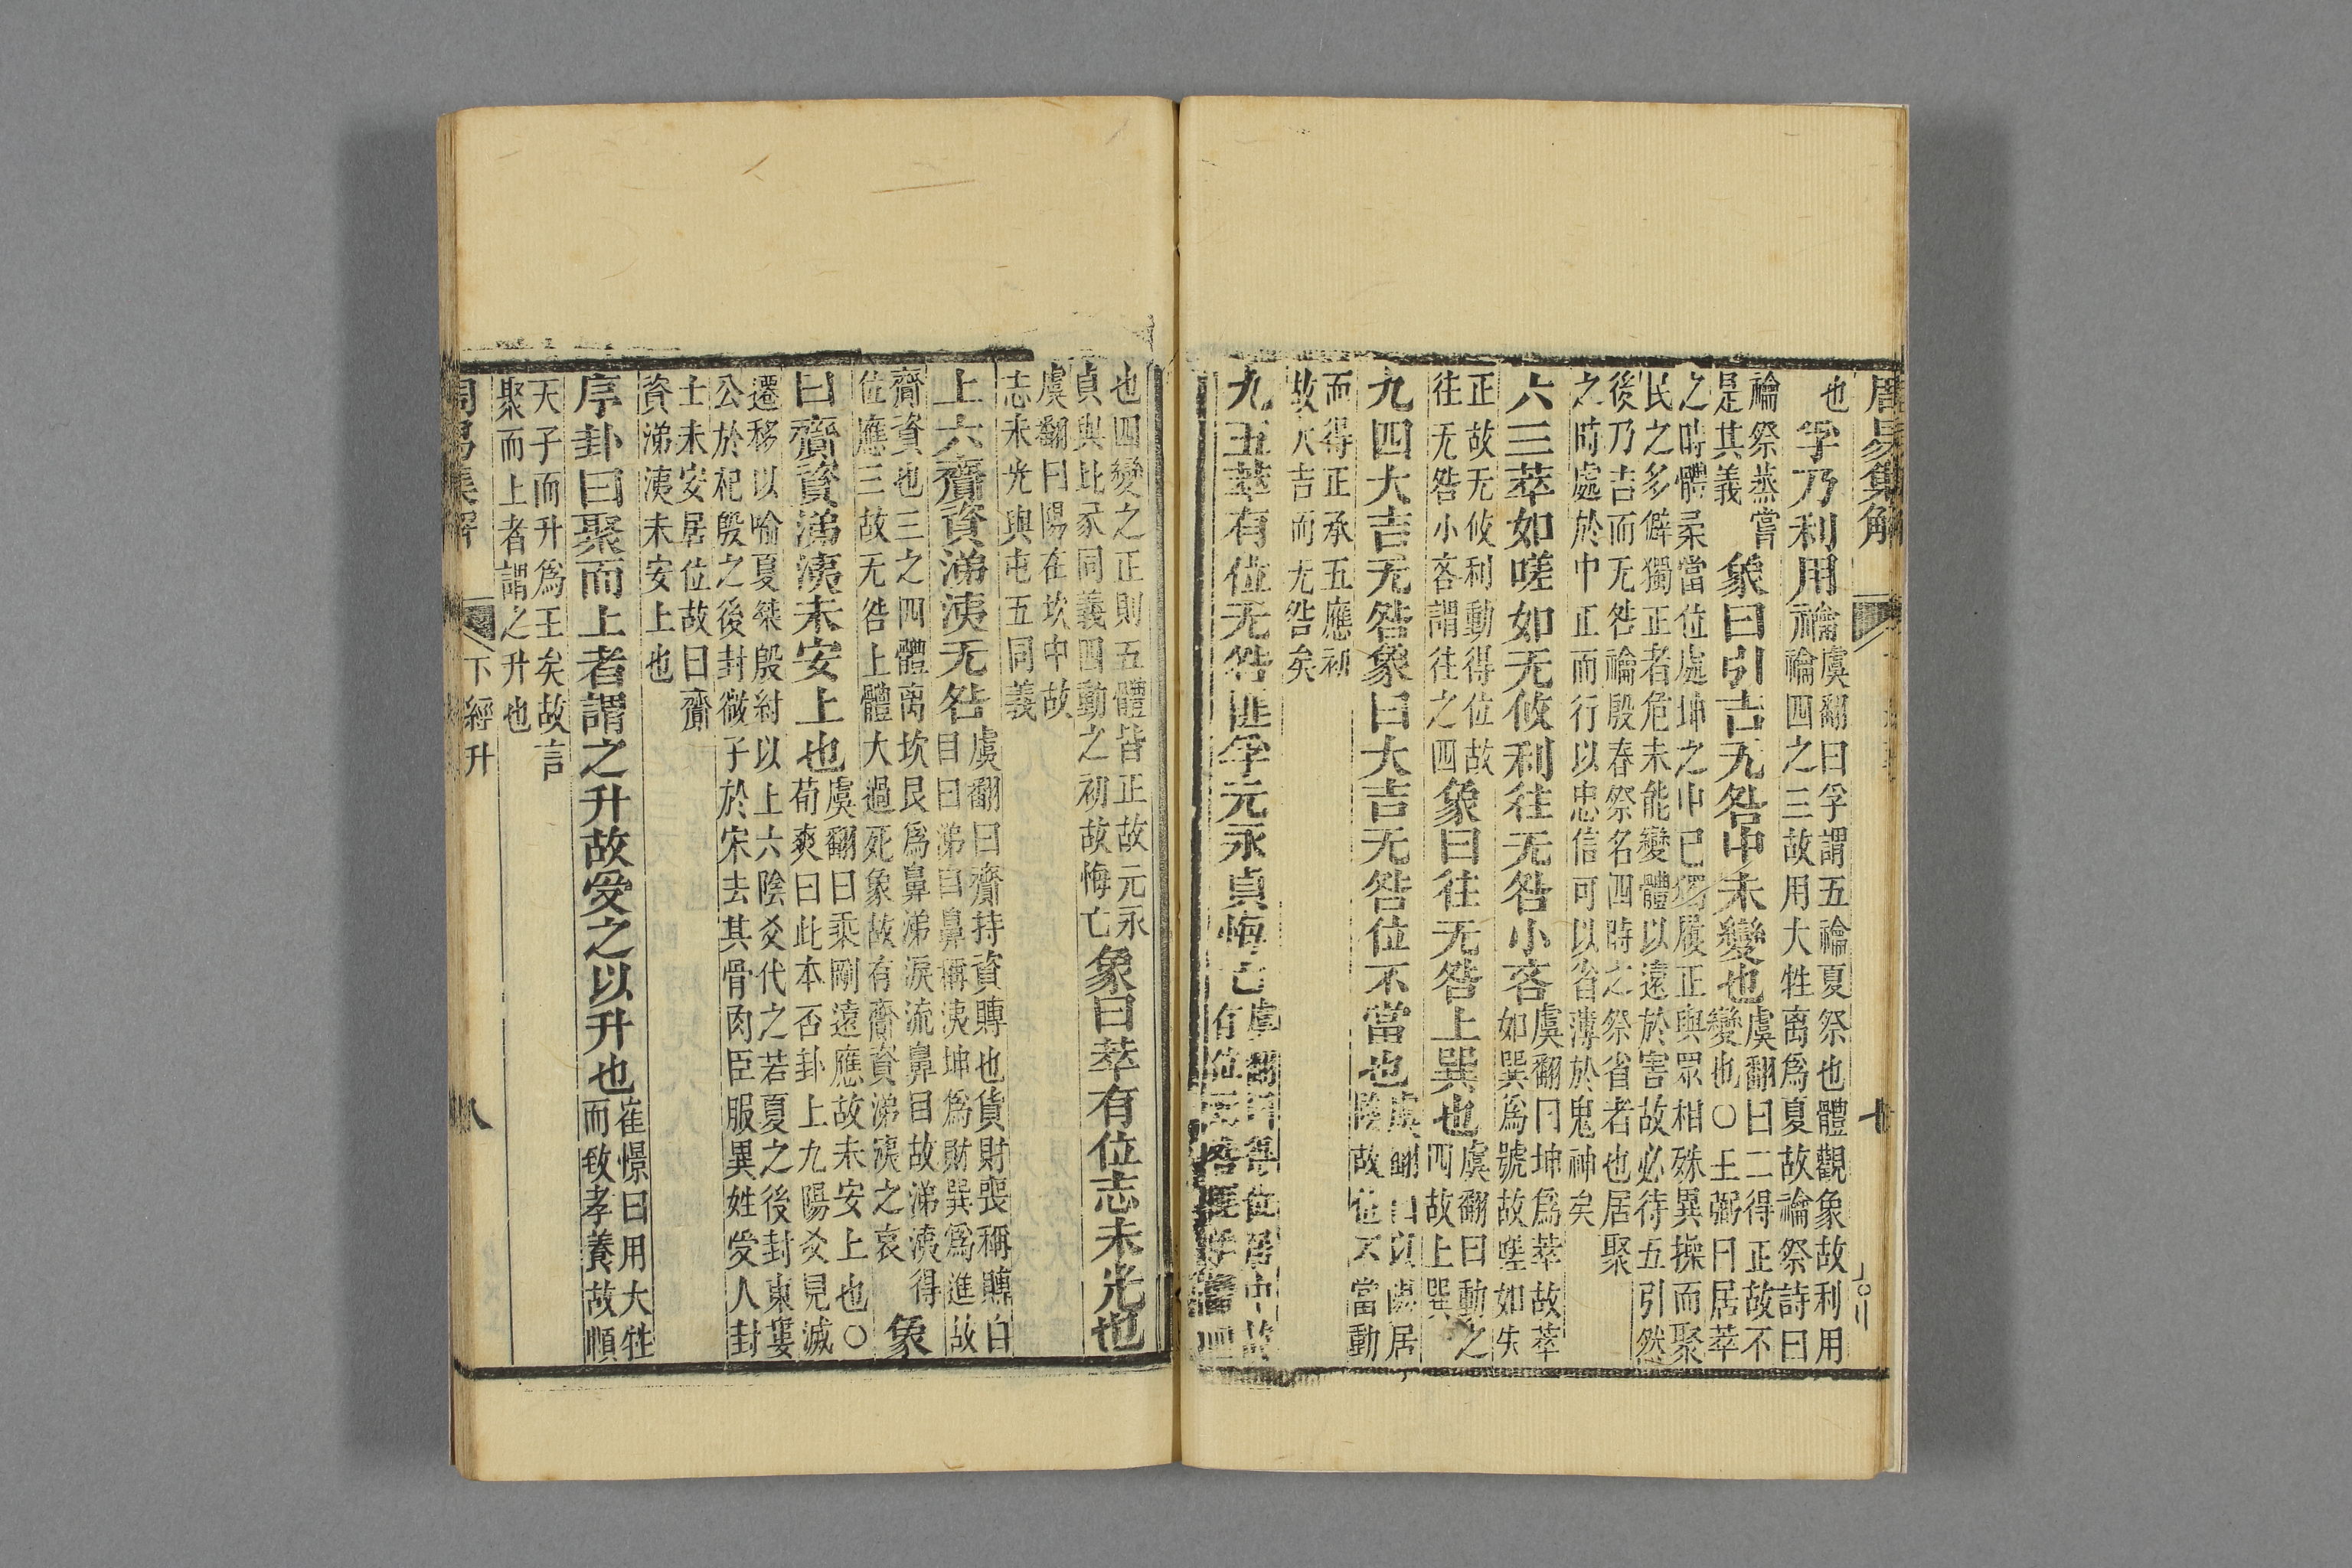 周易集解
七
也孚乃利用禴虞翻曰孚謂五禴夏祭也體觀象故利用
禴四之三故用大牲离爲夏故禴祭詩曰
禴祭蒸嘗
是其義象曰引吉无咎中未變也虞翻曰二得正故不
變也○王弼曰居萃
之時體柔當位處坤之中已獨履正與眾相殊異操而聚
民之多僻獨正者危未能變體以遠於害故必待五引然
後乃吉而无咎禴殷春祭名四時之祭省者也居聚
之時處於中正而行以忠信可以省薄於鬼神矣
六三萃如嗟如无攸利往无咎小吝虞翻曰坤爲萃故萃
如巽爲號故嗟如失
正故无攸利動得位故
往无咎小吝謂往之四象曰往无咎上巽也虞翻曰動之
四故上巽
九四大吉无咎象曰大吉无咎位不當也虞翻曰以陽居
陰故位不當動
而得正承五應初
故大吉而无咎矣
九五萃有位无咎匪孚元永貞悔亡虞翻曰得位居中故
有位无咎匪孚謂四
也四變之正則五體皆正故元永
貞與比彖同義四動之初故悔亡象曰萃有位志未光也
虞翻曰陽在坎中故
志未光與屯五同義
上六齎資涕洟无咎虞翻曰齎持資賻也貨財喪稱賻自
目曰涕自鼻稱洟坤爲財巽爲進故
齎資也三之四體离坎艮爲鼻涕淚流鼻目故涕洟得
位應三故无咎上體大過死象故有齎資涕洟之哀象
曰齎資涕洟未安上也虞翻曰乘剛遠應故未安上也○
荀爽曰此本否卦上九陽爻見滅
遷移以喻夏桀殷紂以上六陰爻代之若夏之後封東婁
公於杞殷之後封微子於宋去其骨肉臣服異姓受人封
士未安居位故曰齎
資涕洟未安上也
序卦曰聚而上者謂之升故受之以升也崔憬曰用大牲
而致孝養故順
天子而升爲王矣故言
聚而上者謂之升也
周易集解
下經升
八